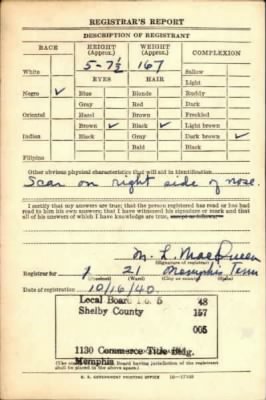 REGISTRAR'S REPORT
DESCRIPTION OF REGISTRANT
RACE HEIGHT (Approx.) WEIGHT (Approx.) COMPLEXION
5-7½ 167
White Sallow
EYES HAIR Light
Negro ✓ Blue Blonde Ruddy
Gray Red Dark
Oriental Hazel Brown Freckled
Brown ✓ Black ✓ Light brown
Indian Black Gray Dark brown ✓
Bald Black
Filipino
Other obvious physical characteristics that will aid in identification
Scar on right side of nose.
I certify that my answers are true; that the person registered has read or has had
read to him his own answers; that I have witnessed his signature or mark and that
all of his answers of which I have knowledge are true, except as follows:
M. L. MacQueen
(Signature of registrar)
Registrar for 21 Memphis Tenn
(Ward) (City or county)
Date of registration 10/16/40.
Local Board No. 5 48
Shelby County 157
005
1130 Commerce Title Bldg.
Memphis
(The Board having jurisdiction of the registrant
shall be placed in the above space.)
U. S. GOVERNMENT PRINTING OFFICE